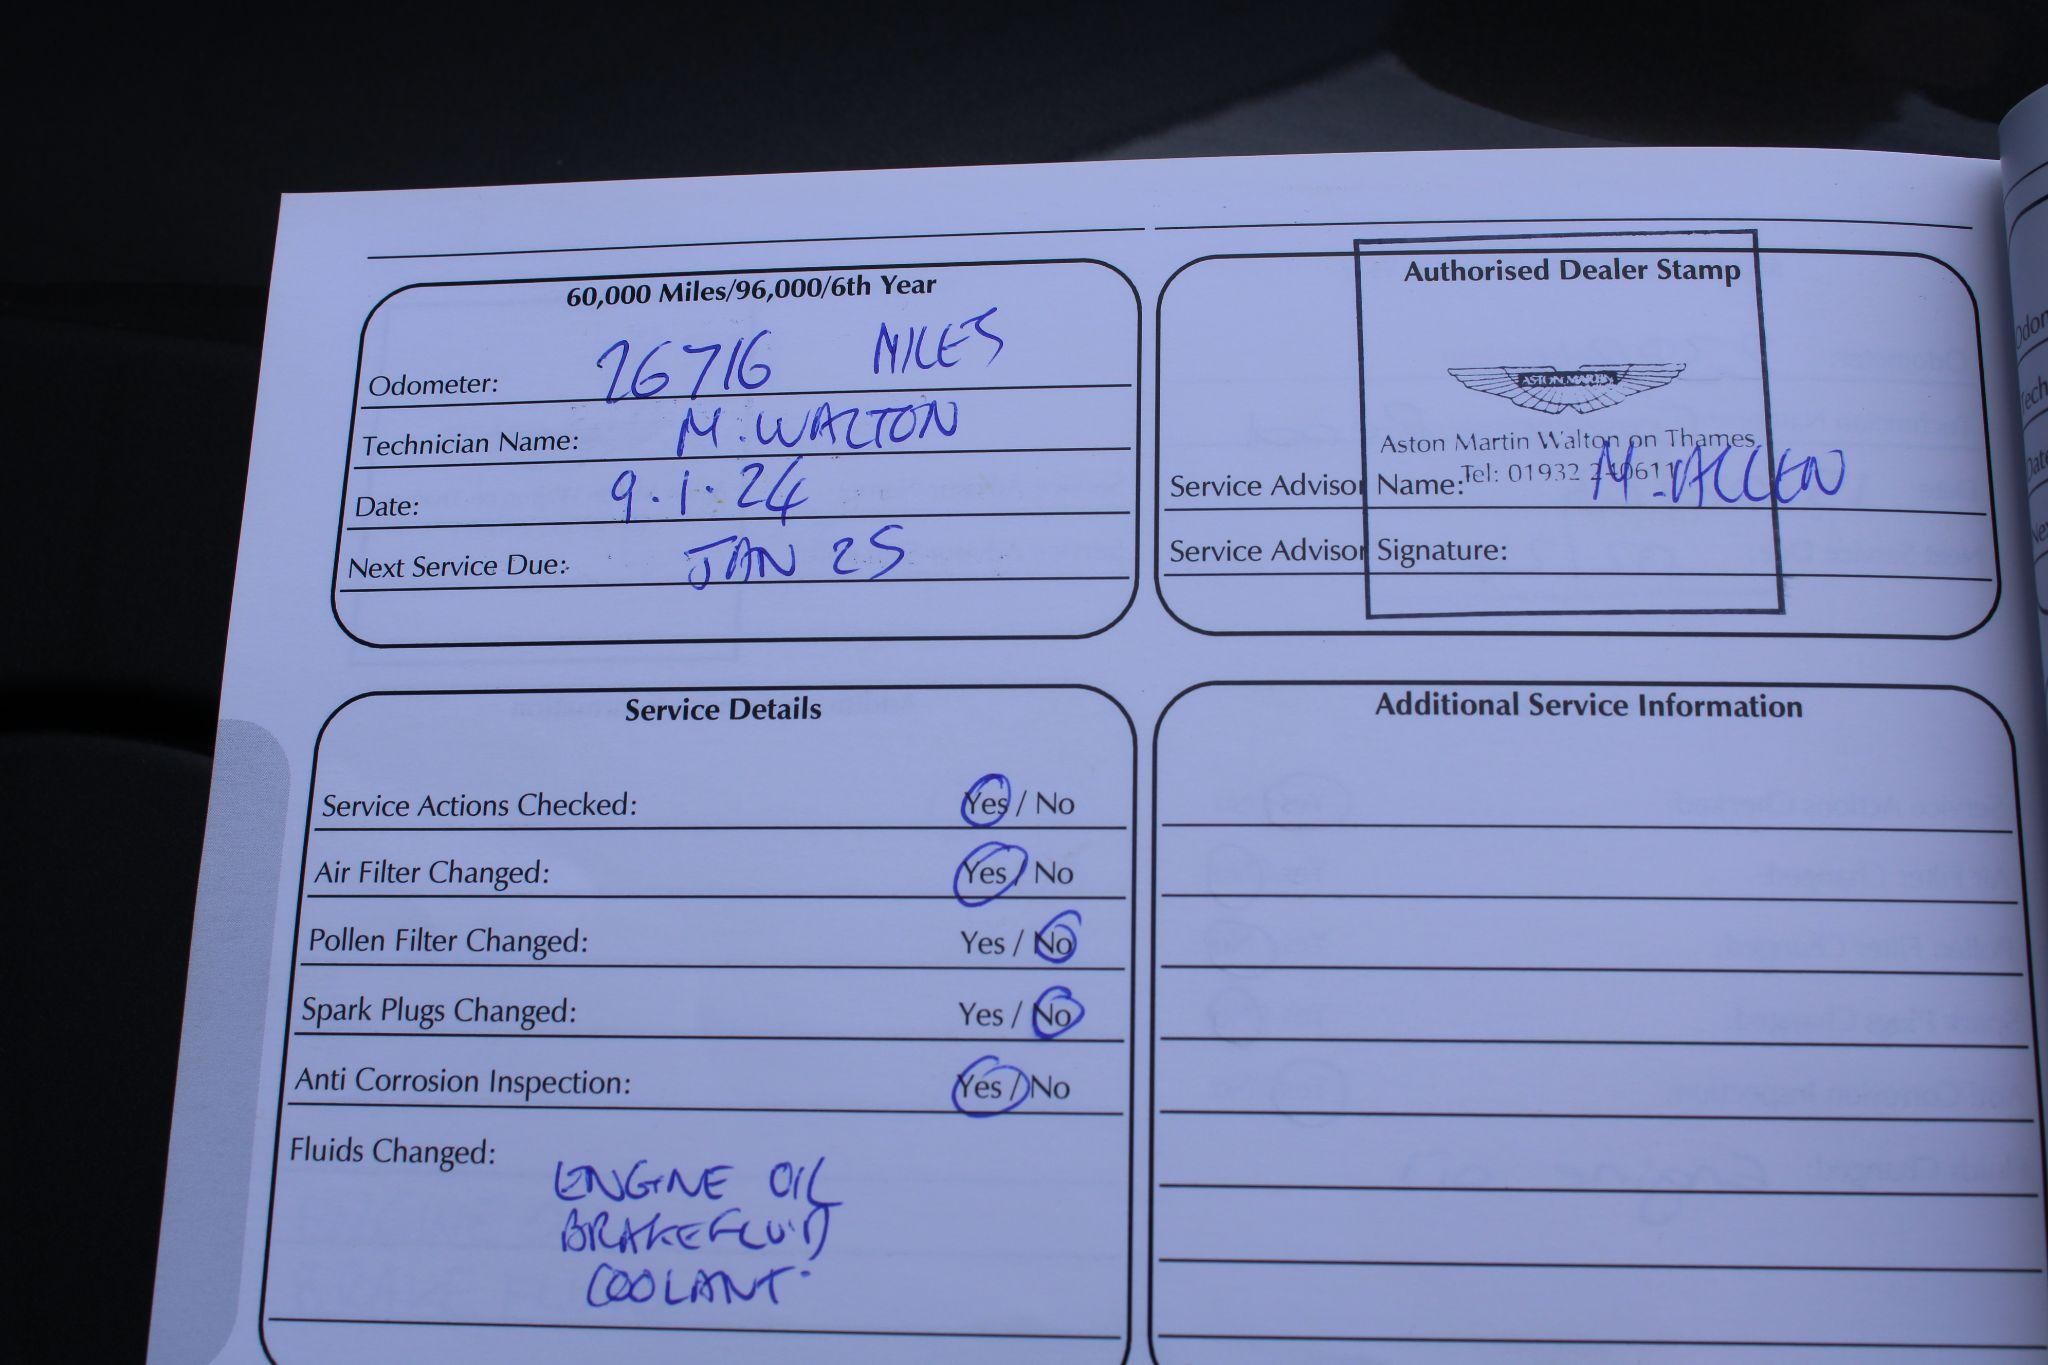 60,000 Miles/96,000/6th Year
Odometer: 26716 MILES
Technician Name: M. WALTON
Date: 9.1.24
Next Service Due: JAN 25
Authorised Dealer Stamp
ASTON MARTIN
Aston Martin Walton on Thames
Tel: 01932 240611
Service Advisor Name: M. ALLEN
Service Advisor Signature:
Service Details
Service Actions Checked: Yes / No
Air Filter Changed: Yes / No
Pollen Filter Changed: Yes / No
Spark Plugs Changed: Yes / No
Anti Corrosion Inspection: Yes / No
Fluids Changed: ENGINE OIL
BRAKE FLUID
COOLANT
Additional Service Information